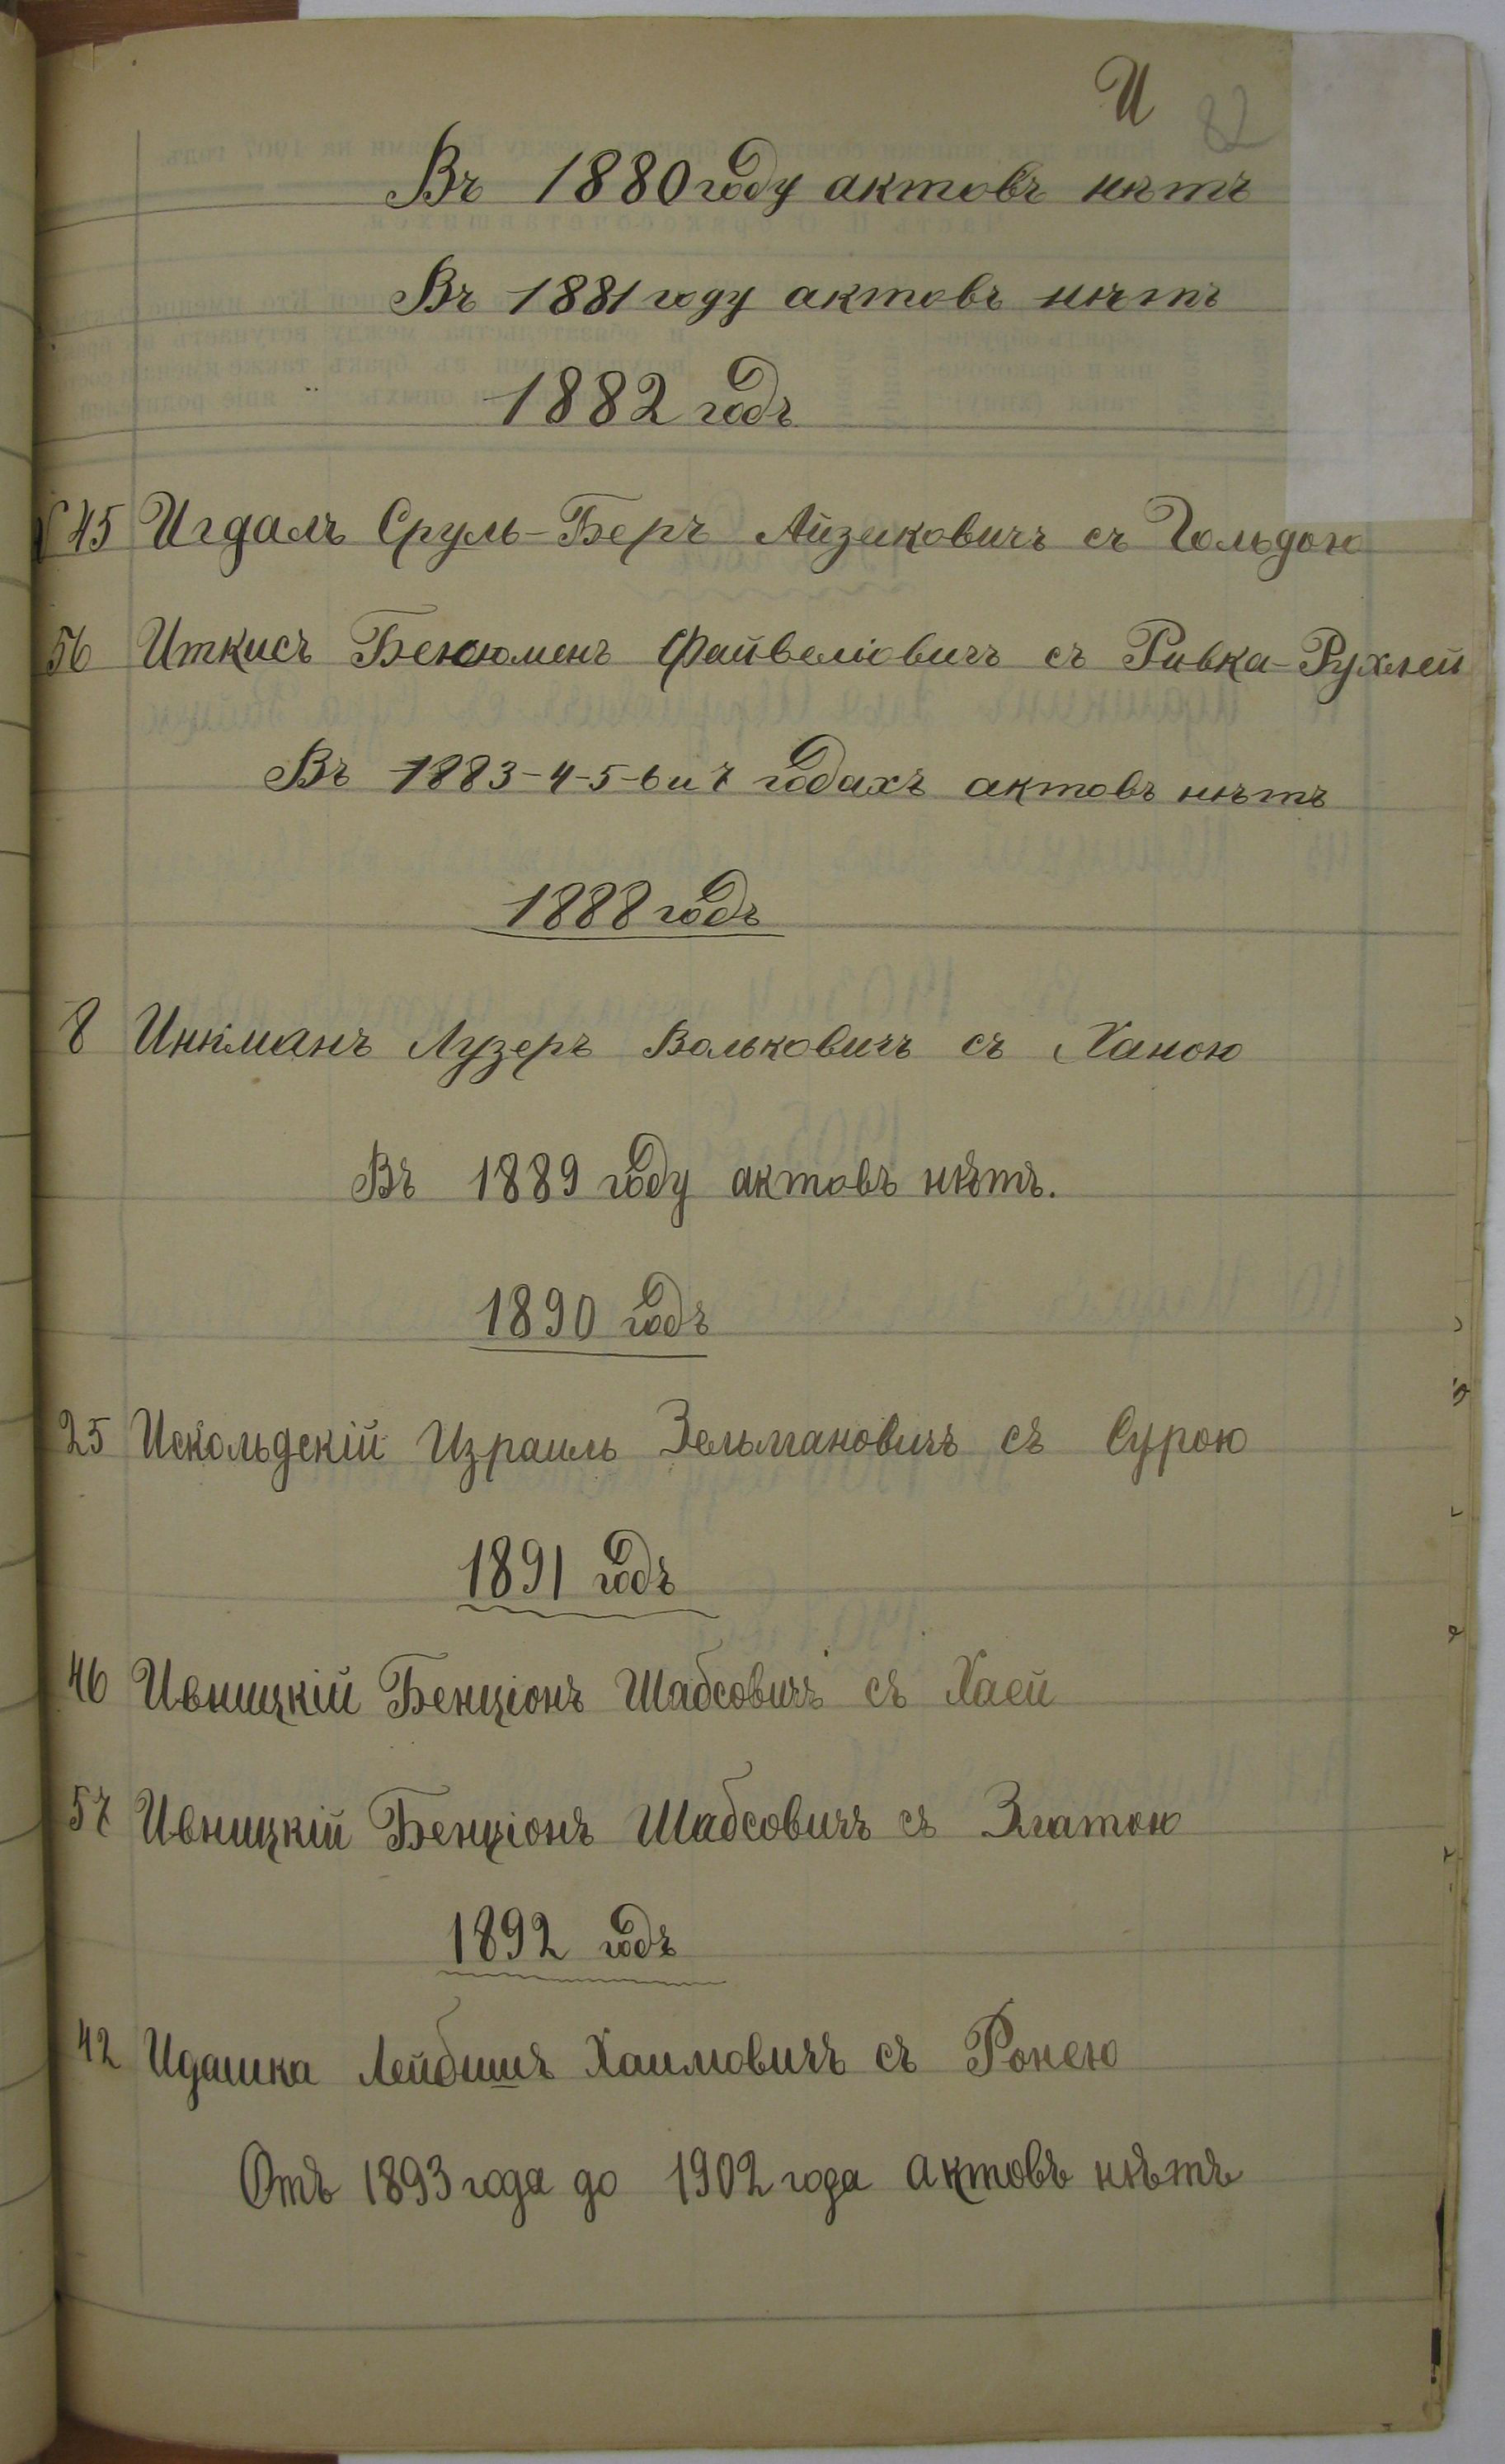 И
82
Въ 1880 году актовъ нѣтъ
Въ 1881 году актовъ нѣтъ
1882 годъ
№ 45 Игдалъ Сруль-Беръ Айзиковичъ съ Гольдою
56 Иткисъ Файвеліовичъ съ Ривка-Рухлей
Въ 1883-4-5-6 и 7 годахъ актовъ нѣтъ
1888 годъ
8 Инкманъ Лузеръ Вольковичъ съ Ханою
Въ 1889 году актовъ нѣтъ.
1890 годъ
25 Искольдскій Израиль Зельмановичъ съ Сурою
1891 годъ
46 Ивницкій Бенціонъ Шабсовичъ съ Хаей
57 Ивницкій Бенціонъ Шабсовичъ съ Златою
1892 годъ
42 Идашка Лейбишъ Хаимовичъ съ Ронею
Отъ 1893 года до 1902 года актовъ нѣтъ